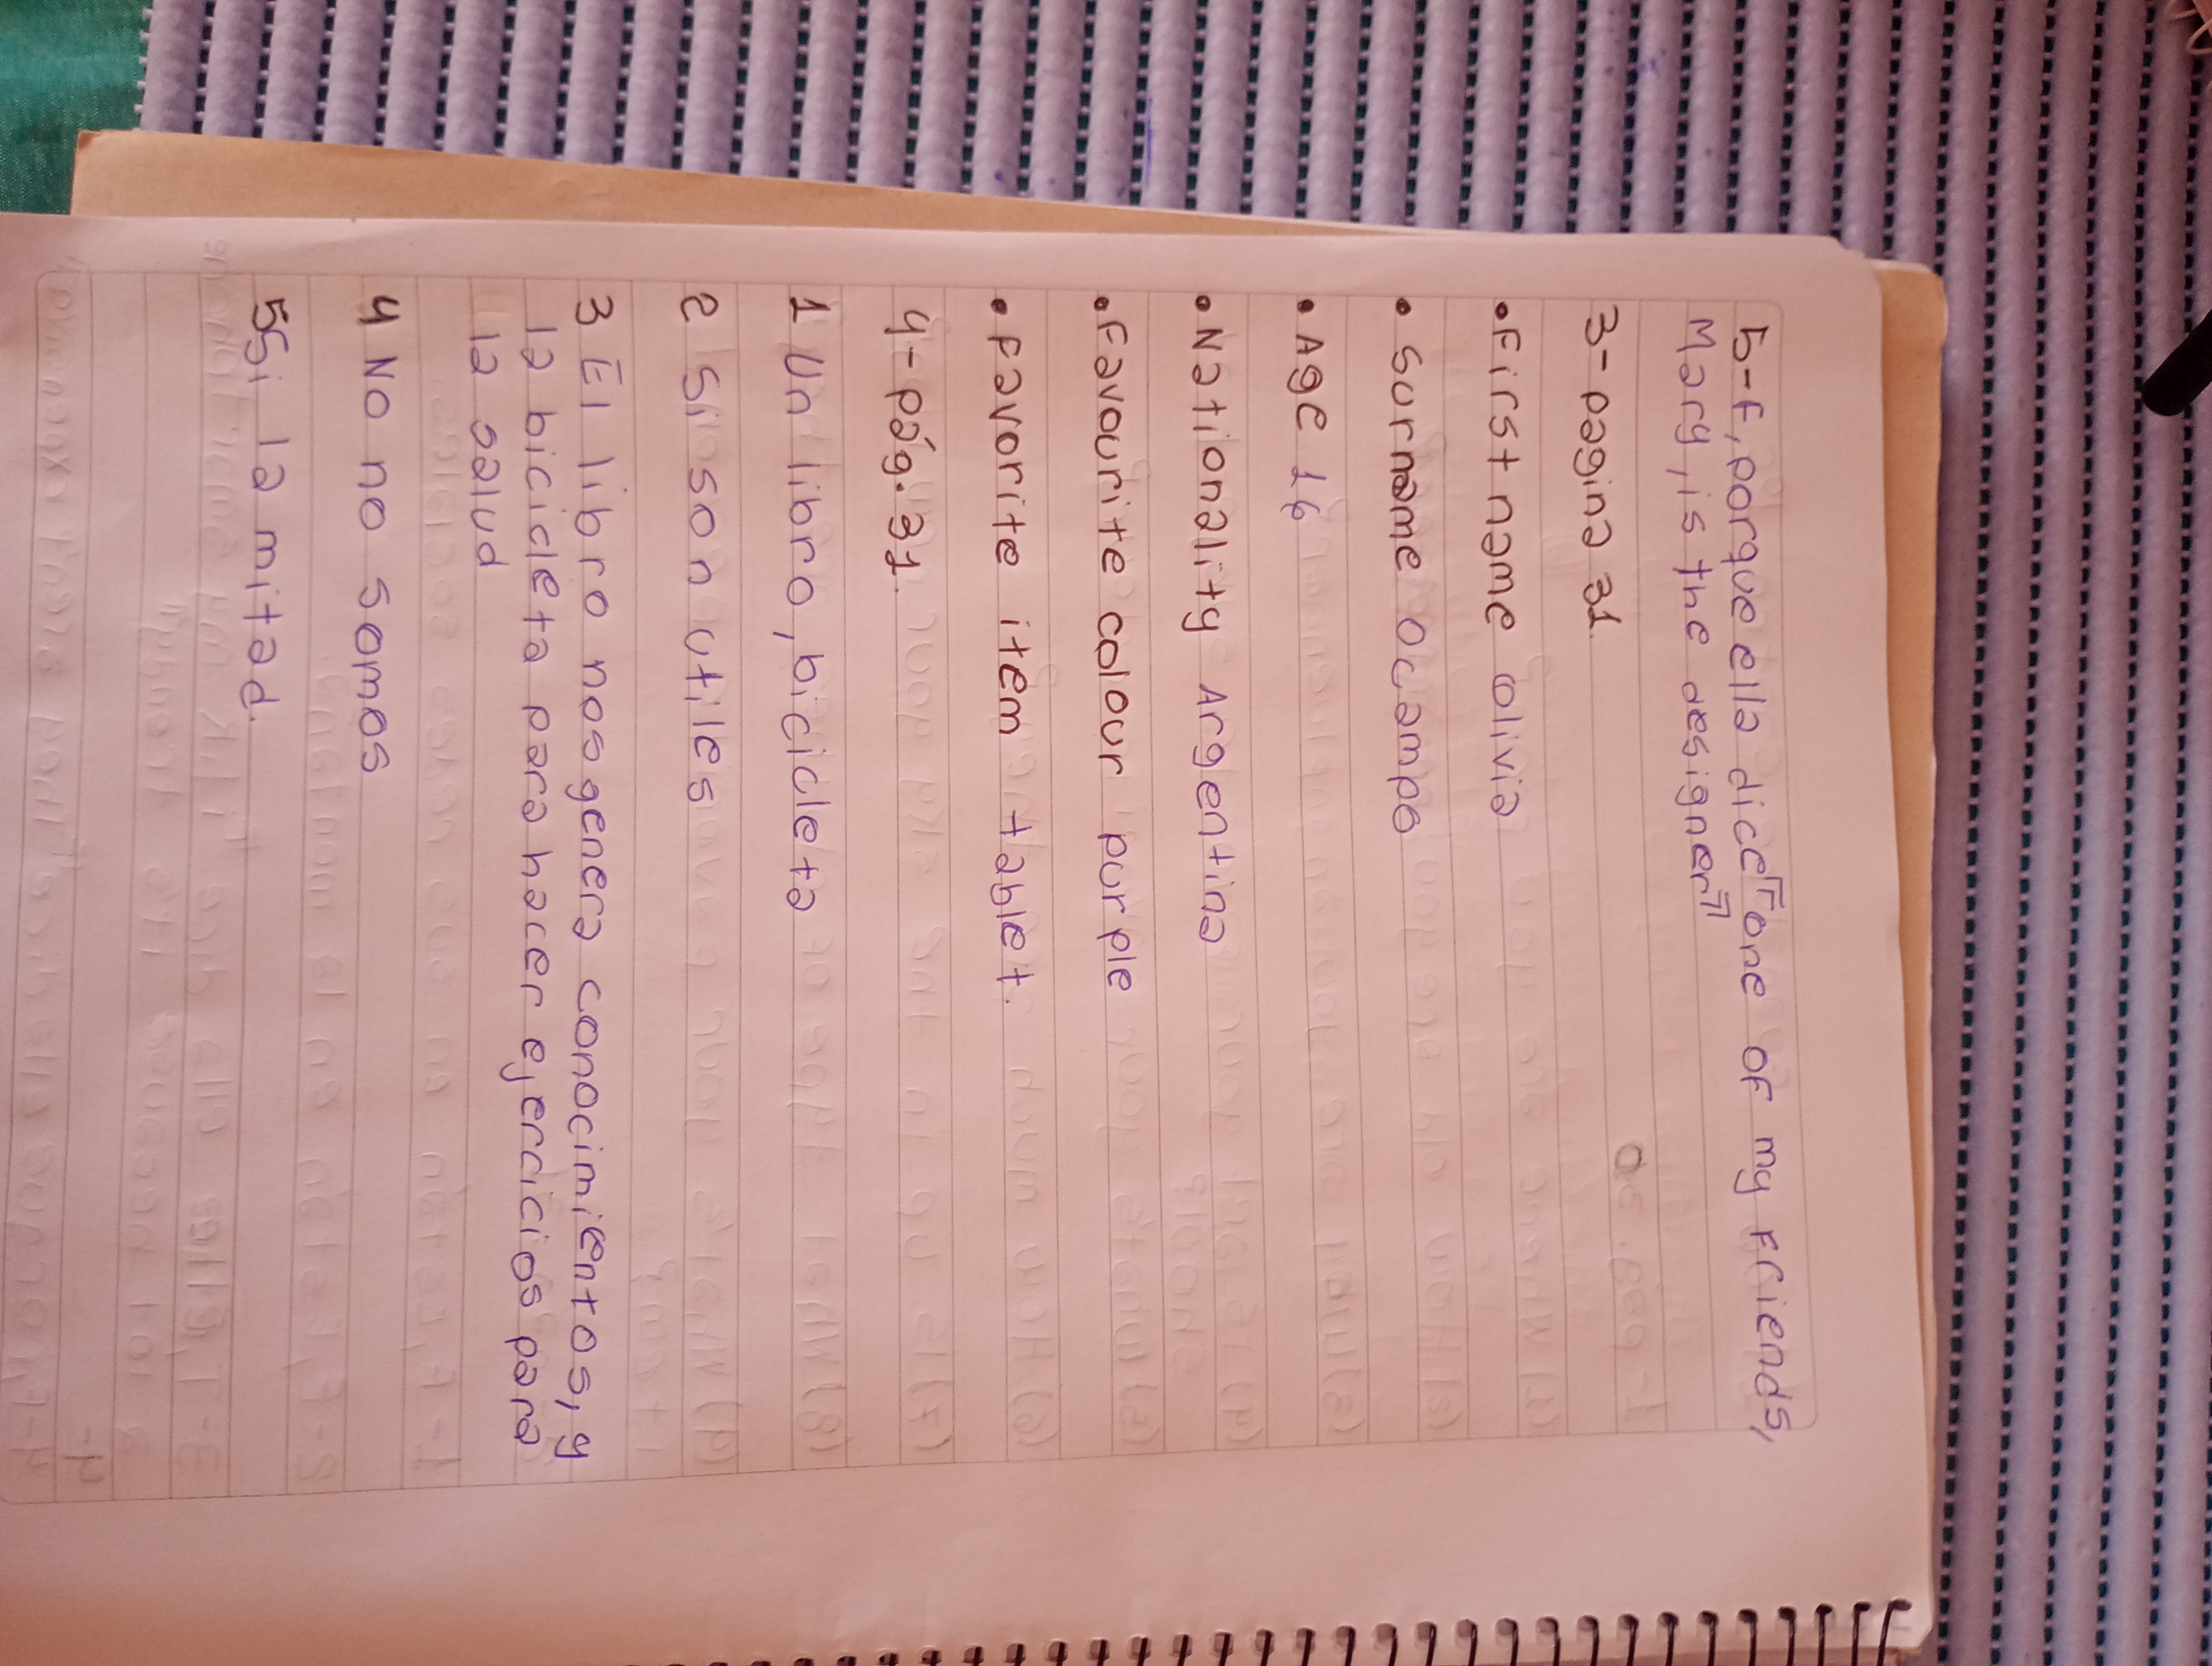 5-F, porque ella dice "one of my friends,
Mary, is the designer"
3-pagina 31
• First name olivia
• Surname Ocampo
• Age 16
• Nationality Argentina
• Favourite colour purple
• Favorite item tablet.
4-pág. 31.
1 Un libro, bicicleta
2 Si son utiles
3 El libro nos genera conocimientos, y
la bicicleta para hacer ejercicios para
la salud
4 No no somos
5 Si la mitad.